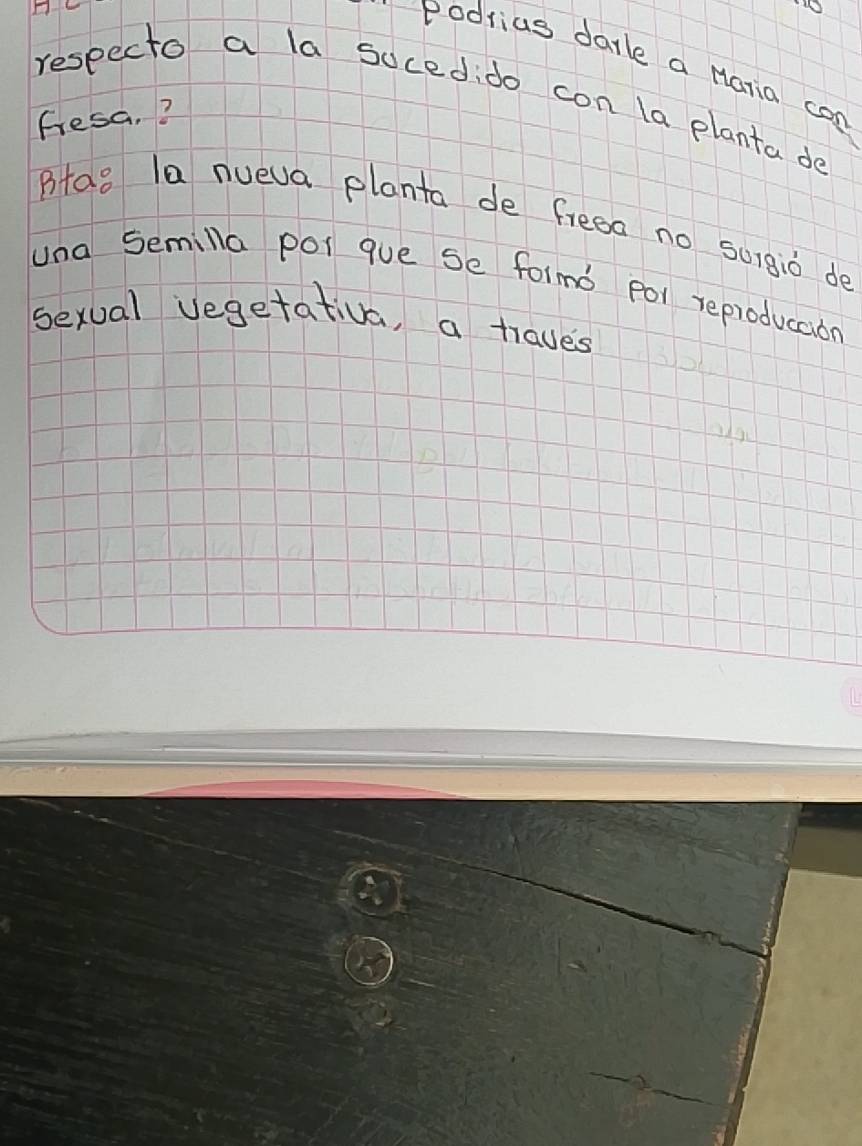 Podrias darle a Maria con
respecto a la sucedido con la planta de
fresa.?
Rta: la nueva planta de fresa no surgió de
una semilla por que se formó por reproducción
sexual vegetativa, a través